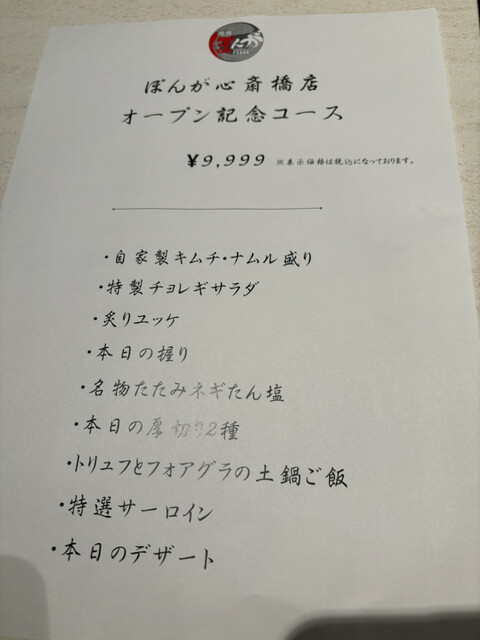 ぽんが心斎橋店
オープン記念コース
¥9,999 ※表示価格は税込になっております。
・自家製キムチ・ナムル盛り
・特製チョレギサラダ
・炙りユッケ
・本日の握り
・名物たたみネギたん塩
・本日の厚切り2種
・トリュフとフォアグラの土鍋ご飯
・特選サーロイン
・本日のデザート